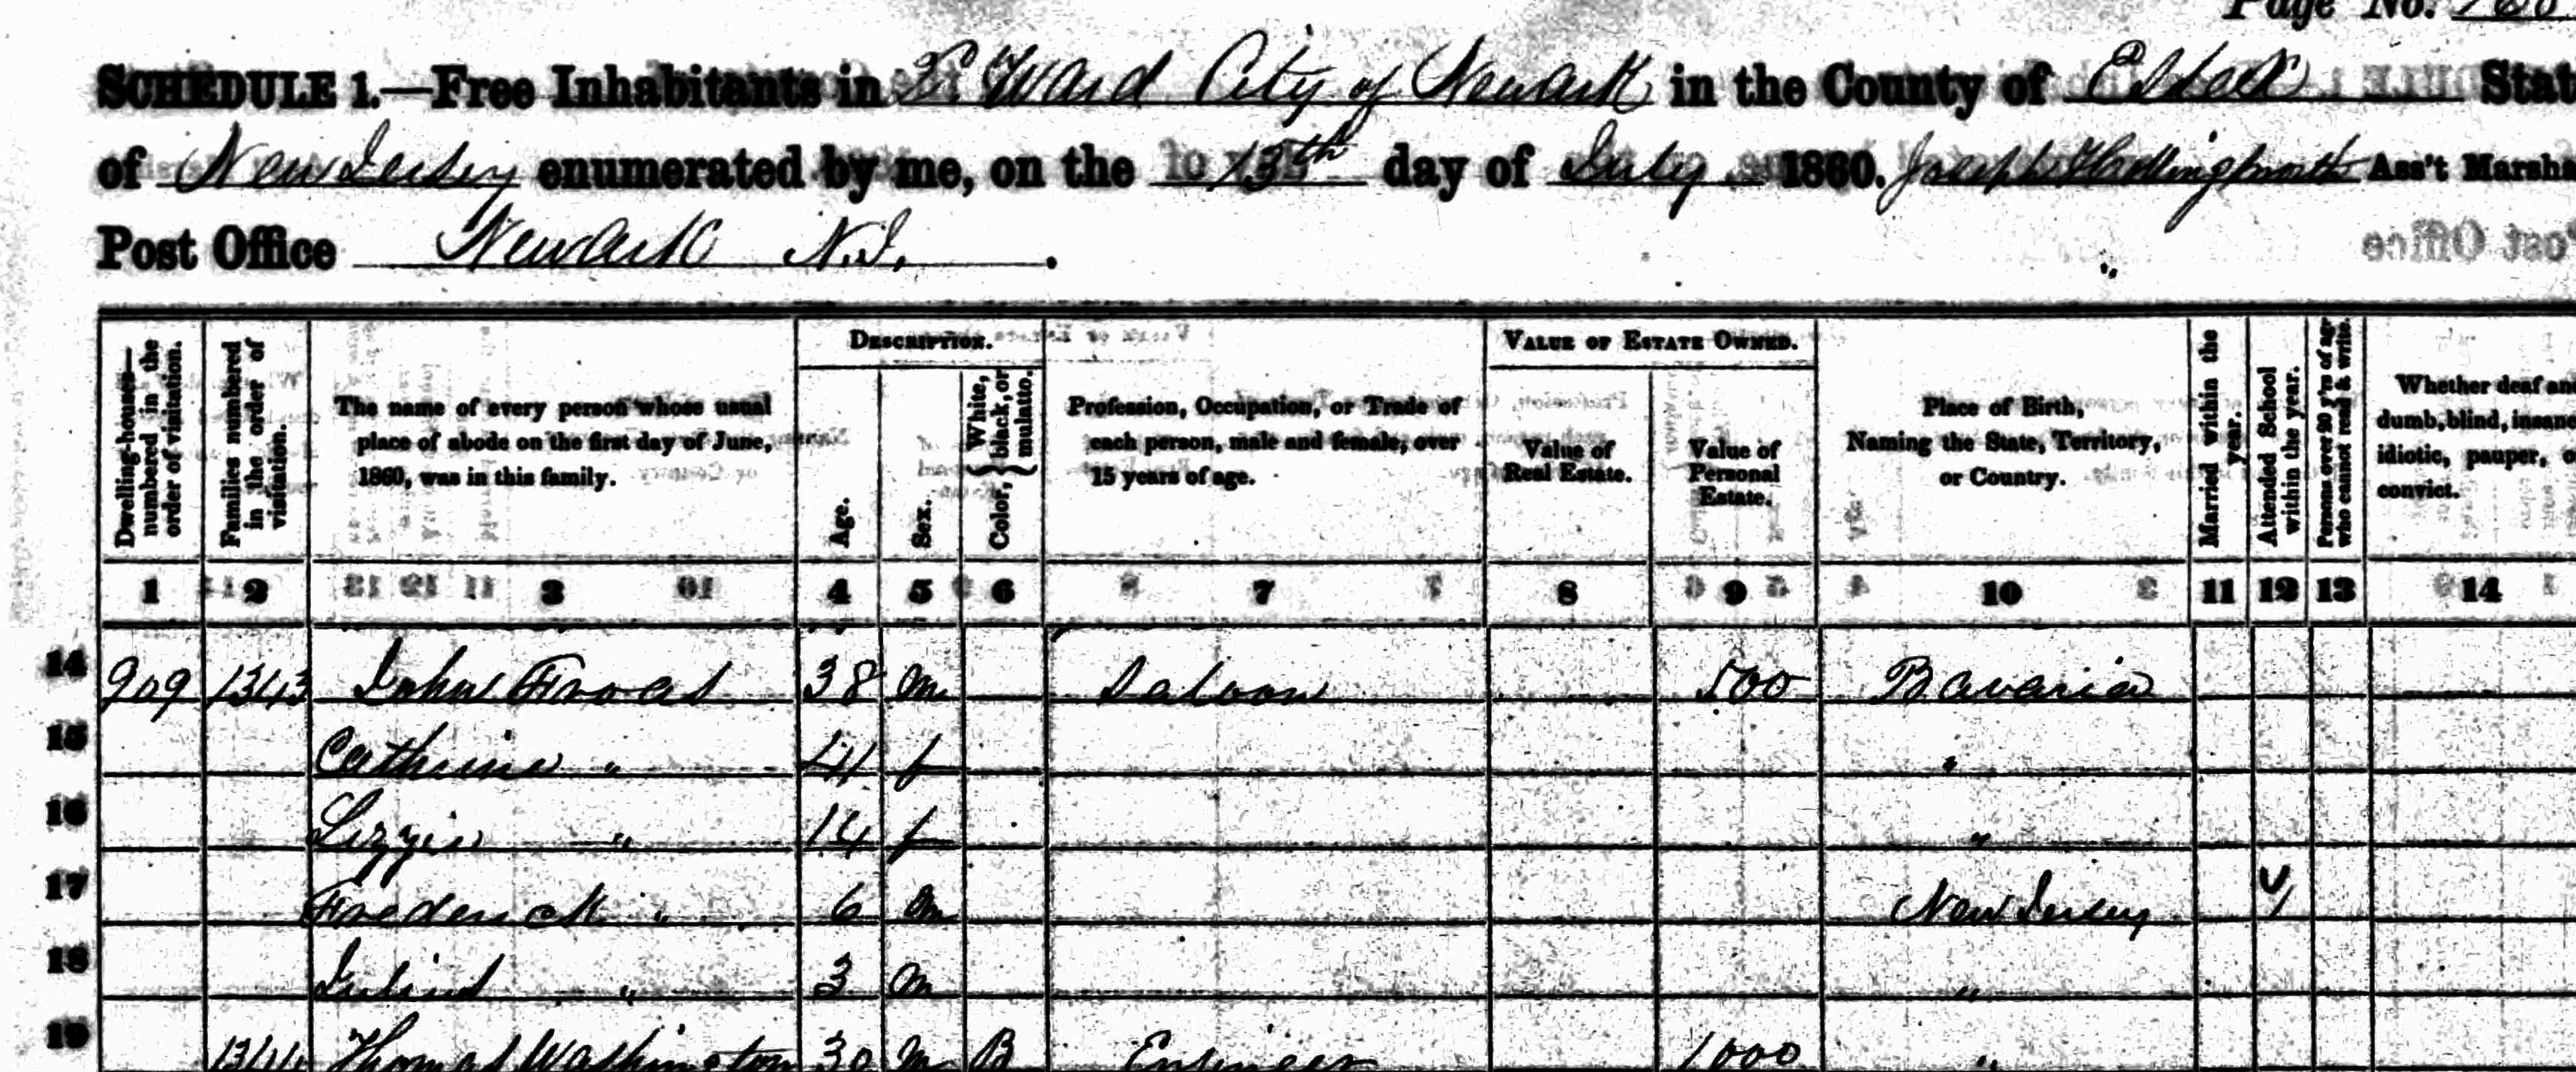 Page No.
SCHEDULE 1.—Free Inhabitants in 3d Ward City of Newark in the County of Essex Stat
of New Jersey enumerated by me, on the 13th day of July 1860. Joseph Hollingsworth Ass't Marsha
Post Office Newark N.J.
Dwelling-houses—numbered in the order of visitation.
Families numbered in the order of visitation.
The name of every person whose usual place of abode on the first day of June, 1860, was in this family.
DESCRIPTION.
Age.
Sex.
Color, { White, black, or mulatto. }
Profession, Occupation, or Trade of each person, male and female, over 15 years of age.
VALUE OF ESTATE OWNED.
Value of Real Estate.
Value of Personal Estate.
Place of Birth, Naming the State, Territory, or Country.
Married within the year.
Attended School within the year.
Persons over 20 y'rs of age who cannot read & write.
Whether deaf an
dumb, blind, insane
idiotic, pauper, o
convict.
1 2 3 4 5 6 7 8 9 10 11 12 13 14
14 909 1343 John Froas 38 m Saloon 500 Bavaria
15 Cathrine " 41 f "
16 Lizzie " 14 f "
17 Frederick " 6 m New Jersey
18 Julius " 3 m "
19 1344 Thomas Washington 30 m B Engineer 1000 "